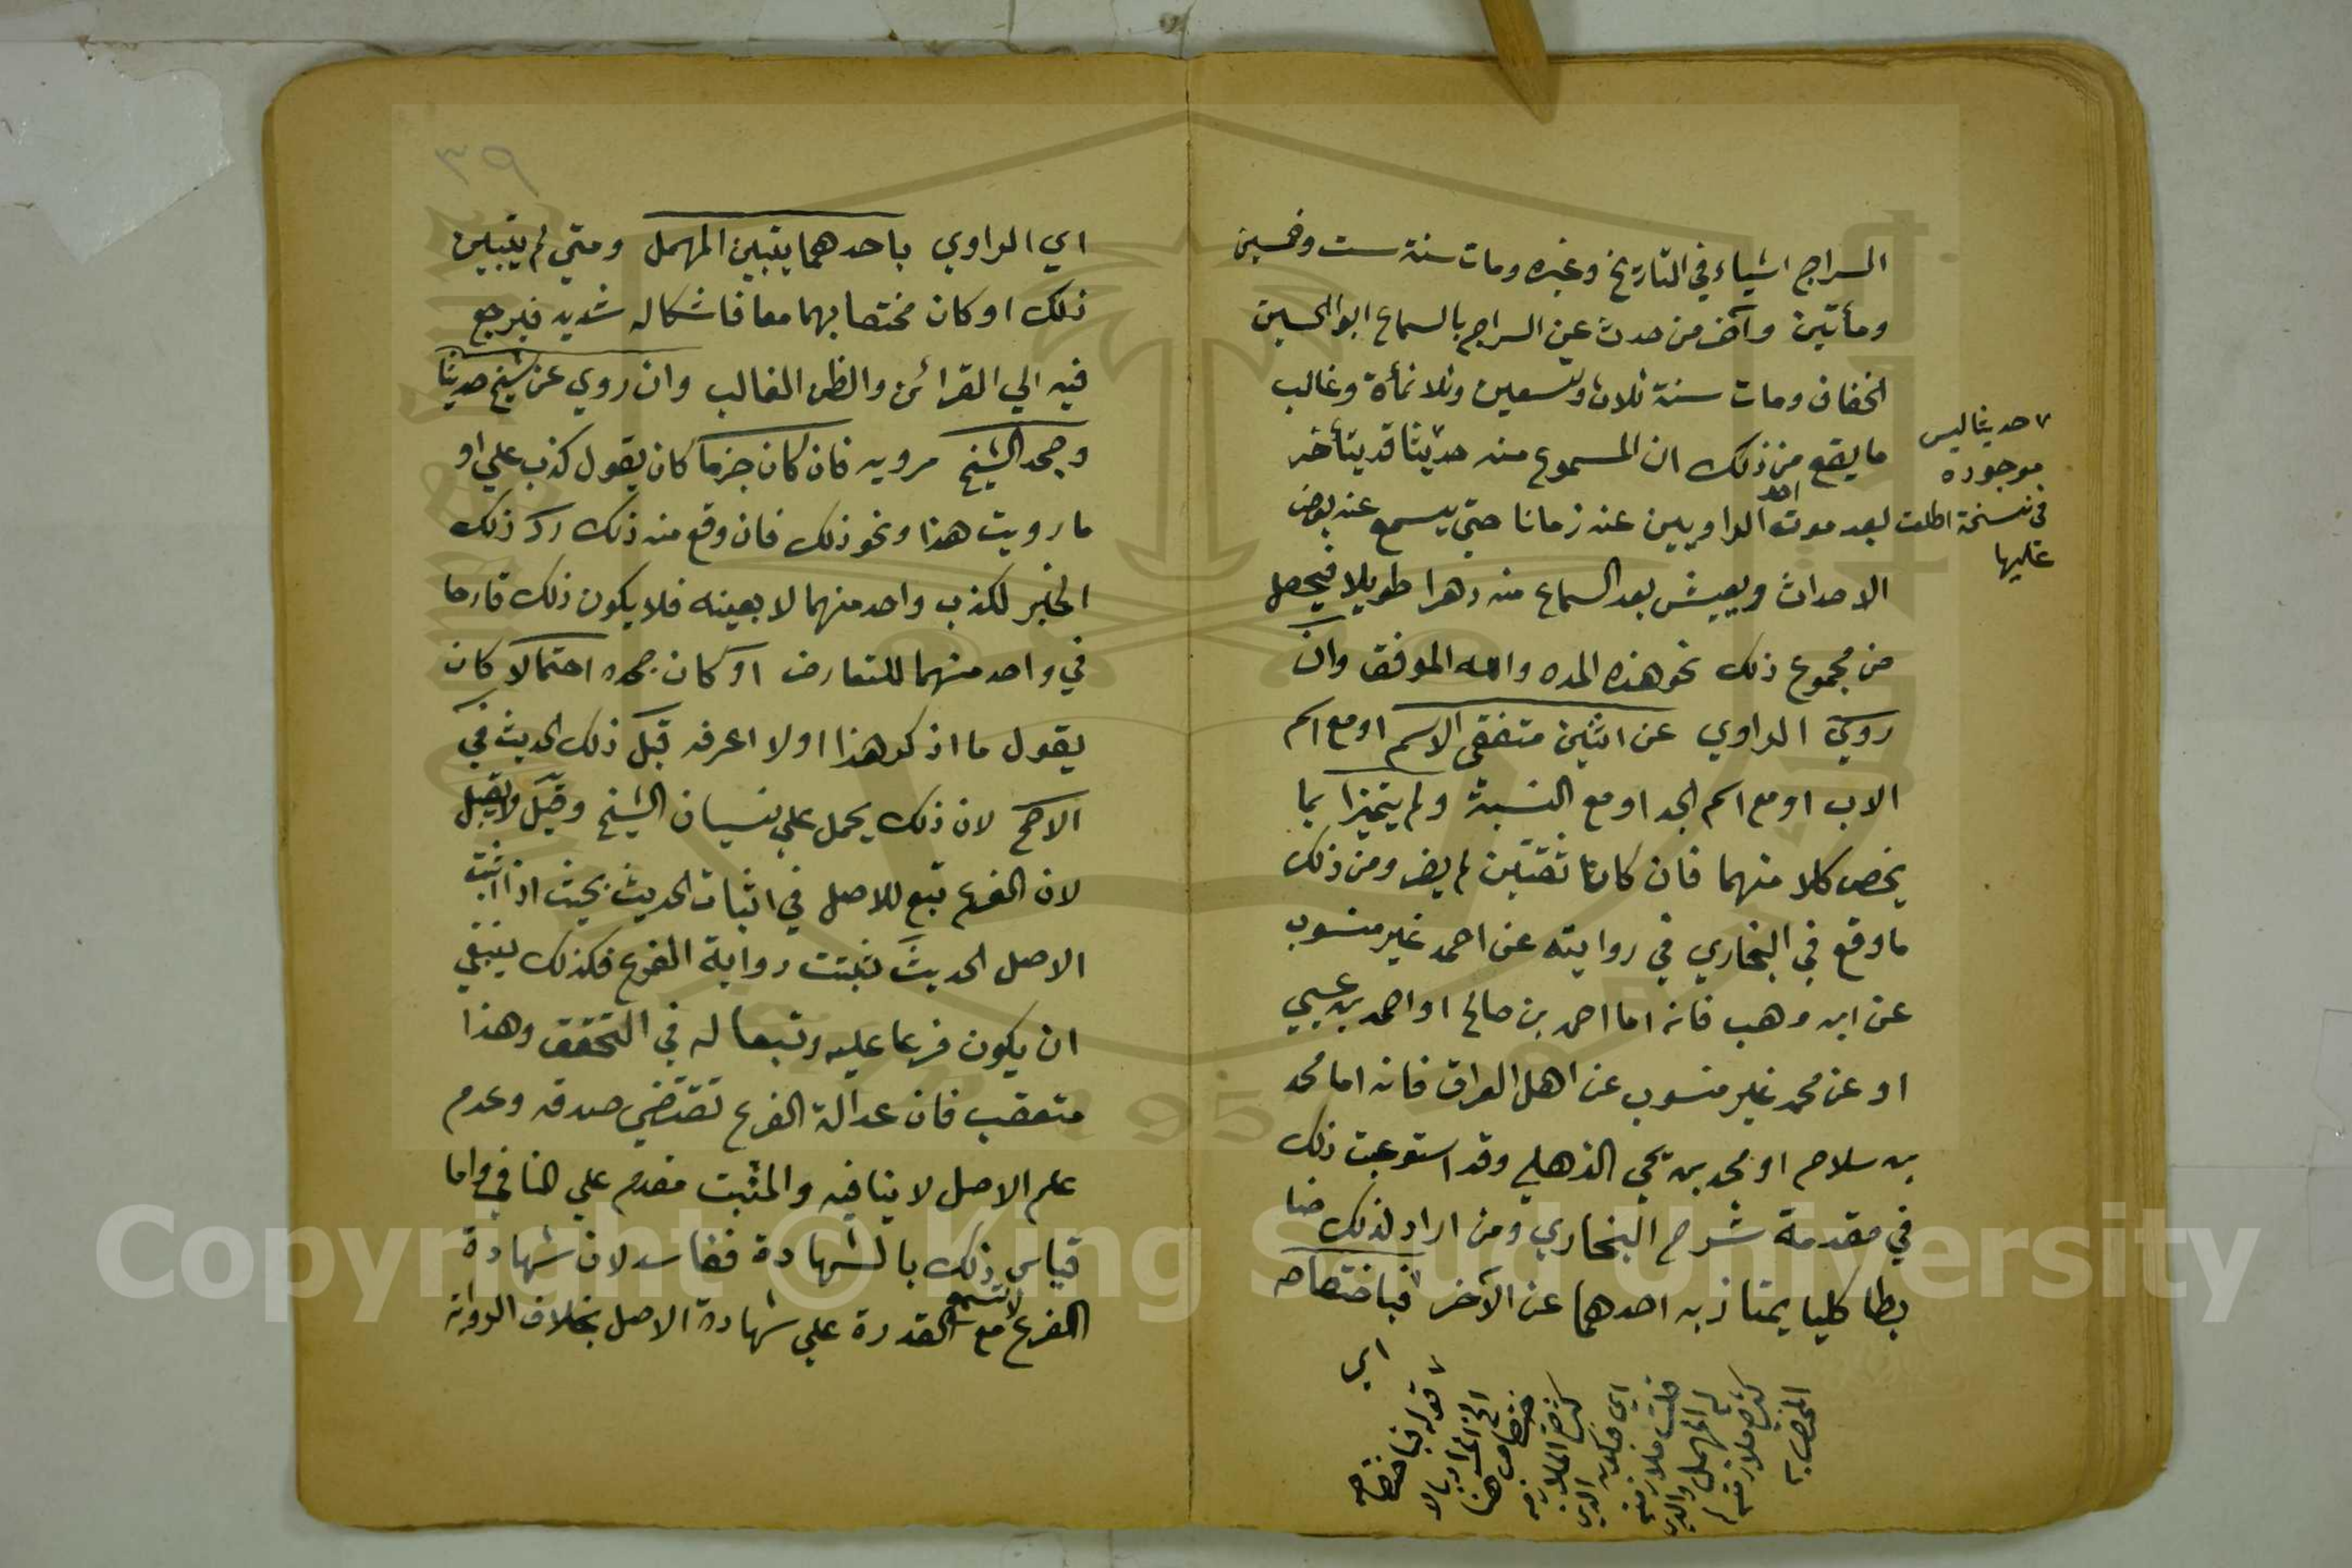 السراج اشياء في التاريخ وغيره ومات سنة ست وخمسين
ومأتين وآخر من حدث عن السراج بالسماع ابو الحسين
الخفاف ومات سنة ثلاث وتسعين وثلاثمأة وغالب
ما يقع من ذلك ان المسموع منه حديثا قد يتأخر
بعد موت احد الراويين عنه زمانا حتي يسمع عنه بعض
الاحداث ويعيش بعد السماع منه دهرا طويلا فيحصل
من مجموع ذلك نحو هذه المده والله الموفق وان
روي الراوي عن اثنين متفقي الاسم او مع اسم
الاب او مع اسم الجد او مع النسبة ولم يتميزا بما
يخص كلا منهما فان كانا ثقتين لم يضر ومن ذلك
ما وقع في البخاري في روايته عن احمد غير منسوب
عن ابن وهب فانه اما احمد بن صالح او احمد بن عيسي
او عن محمد غير منسوب عن اهل العراق فانه اما محمد
بن سلام او محمد بن يحي الذهلي وقد استوعبت ذلك
في مقدمة شرح البخاري ومن اراد لذلك ضا
بطا كليا يمتاز به احدهما عن الآخر فباختصاصه
اي
حديثا ليس
موجوده
في نسخة اطلعت
عليها
قوله فباختصاصه
الخ المراد بالا
ختصاص هنا
كثرة الملازمة
المهمل والذي
اي الراوي باحدهما يتبين المهمل ومتي لم يتبين
ذلك او كان مختصا بهما معا فاشكاله شديد فيرجع
فيه الي القرائن والظن الغالب وان روي عن شيخ حديثا
وجحد الشيخ مرويه فان كان جزما كان يقول كذب علي او
ما رويت هذا ونحو ذلك فان وقع منه ذلك رد ذلك
الخبر لكذب واحد منهما لا بعينه فلا يكون ذلك قادحا
في واحد منهما للتعارض او كان جحده احتمالا كان
يقول ما اذكر هذا او لا اعرفه قبل ذلك الحديث في
الاصح لان ذلك يحمل علي نسيان الشيخ وقيل لا يقبل
لان الفرع تبع للاصل في اثبات الحديث بحيث اذا اثبت
الاصل الحديث تثبتت رواية الفرع فكذلك ينبغي
ان يكون فرعا عليه وتبعا له في التحقق وهذا
متعقب فان عدالة الفرع تقتضي صدقه وعدم
علم الاصل لا ينافيه والمثبت مقدم علي النافي واما
قياس ذلك بالشهادة ففاسد لان شهادة
الفرع لا تسمع مع القدرة علي شهادة الاصل بخلاف الرواية
٣٩
Copyright © King Saud University